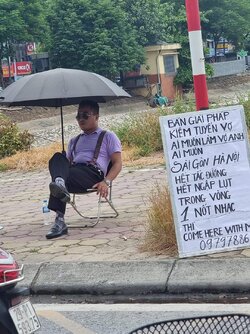 BÁN GIẢI PHÁP
KIẾM TUYỂN VỢ
AI MUỐN LÀM VỢ ANH
AI MUỐN
SÀI GÒN HÀ NỘI
HẾT TẮC ĐƯỜNG
HẾT NGẬP LỤT
TRONG VÒNG
1 NỐT NHẠC
THÌ
COME HERE WITH M